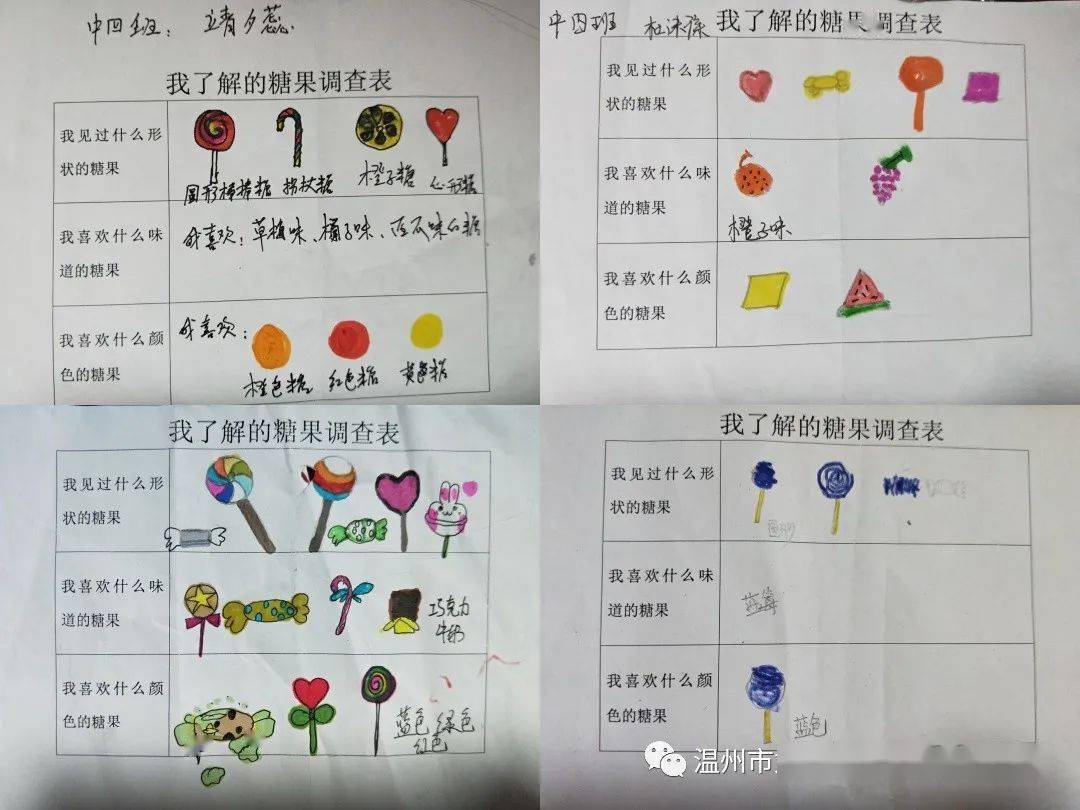 中四班：
我了解的糖果调查表
我见过什么形
状的糖果
圆形棒棒糖 拐杖糖 橙子糖 心形糖
我喜欢什么味
道的糖果
我喜欢：草莓味、橘子味、西瓜味的糖
我喜欢什么颜
色的糖果
我喜欢：
橙色糖 红色糖 黄色糖
中四班
我了解的糖果调查表
我见过什么形
状的糖果
我喜欢什么味
道的糖果
橙子味
我喜欢什么颜
色的糖果
我了解的糖果调查表
我见过什么形
状的糖果
我喜欢什么味
道的糖果
巧克力
牛奶
我喜欢什么颜
色的糖果
蓝色 绿色
红色
我了解的糖果调查表
我见过什么形
状的糖果
圆形
我喜欢什么味
道的糖果
蓝莓
我喜欢什么颜
色的糖果
蓝色
温州市